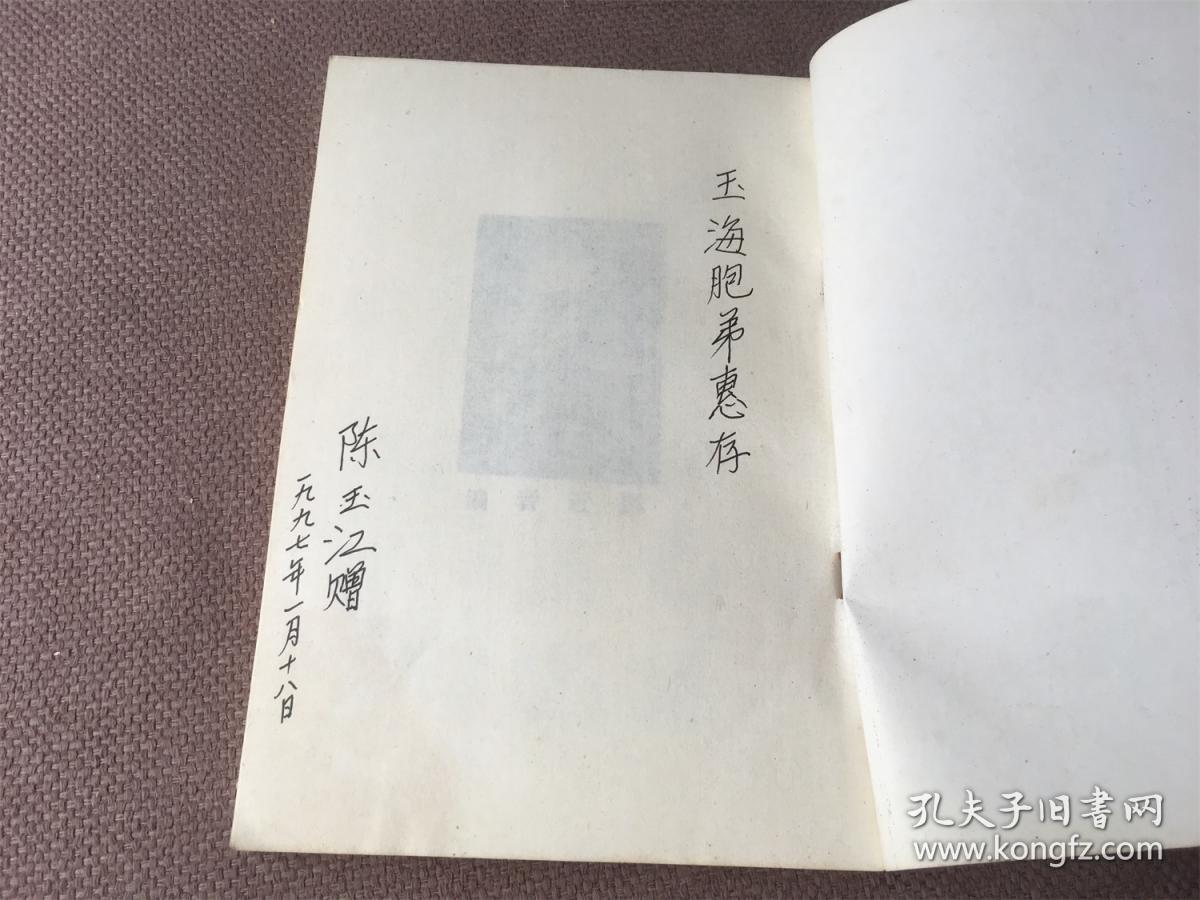 玉海胞弟惠存
陈玉江赠
一九九七年一月十八日
孔夫子旧书网
www.kongfz.com